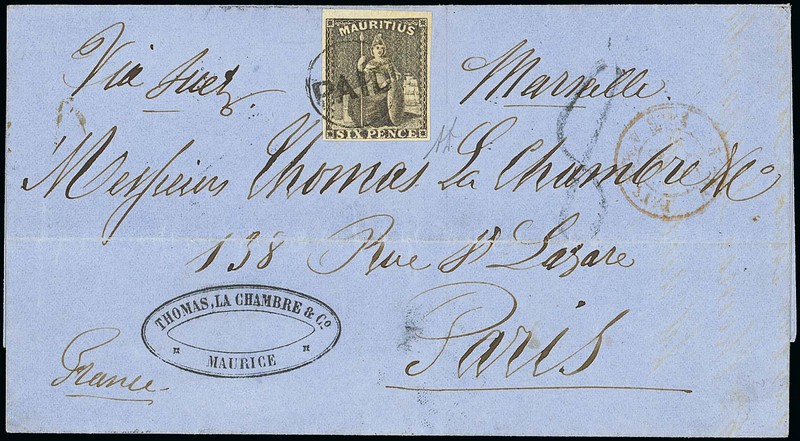 MAURITIUS
PAID
SIX PENCE
Via Suez
Marseille
Messieurs Thomas La Chambre & Co
138 Rue St Lazare
Paris
France
THOMAS, LA CHAMBRE & Co.
MAURICE